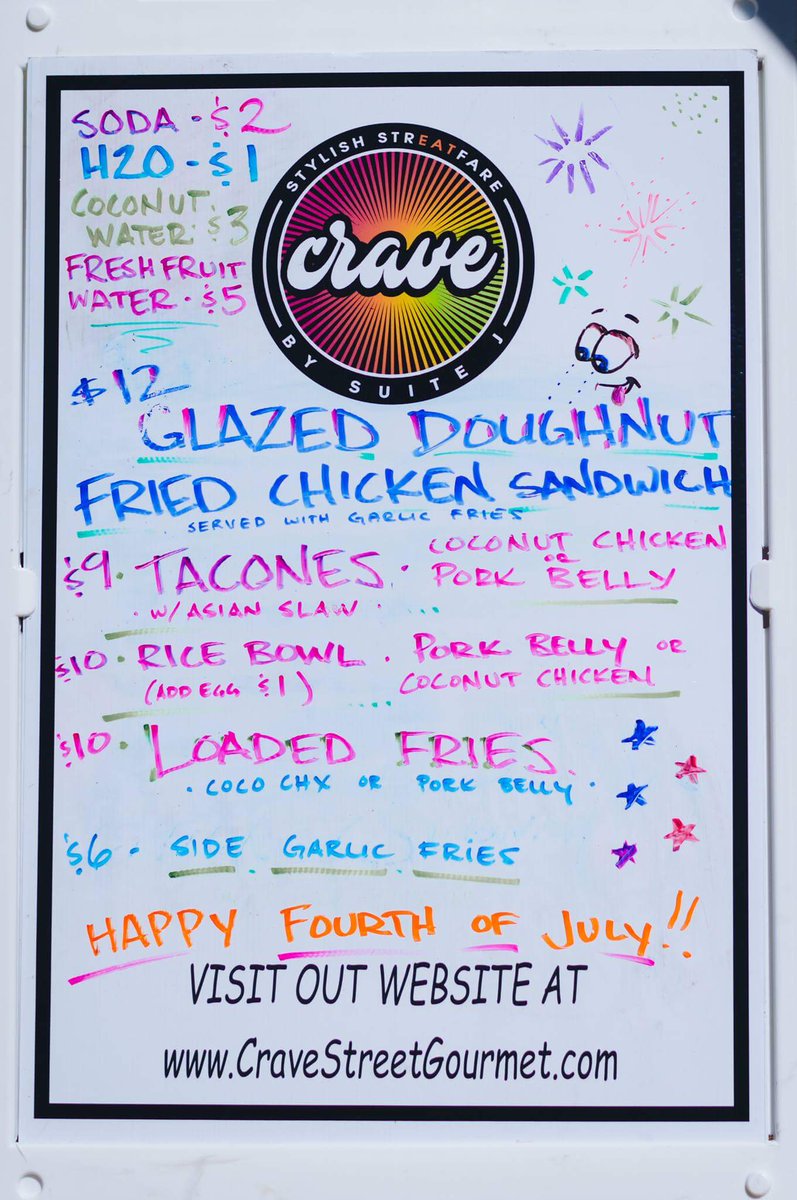 SODA - $2
H2O - $1
COCONUT
WATER $3
FRESH FRUIT
WATER - $5
STYLISH STREATFARE
crave
BY SUITE J
$12
GLAZED DOUGHNUT
FRIED CHICKEN SANDWICH
SERVED WITH GARLIC FRIES
$9 · TACONES · COCONUT CHICKEN
or
PORK BELLY
· W/ ASIAN SLAW ·
$10 · RICE BOWL · PORK BELLY or
(ADD EGG $1) COCONUT CHICKEN
$10 · LOADED FRIES
· COCO CHX OR PORK BELLY ·
$6 - SIDE GARLIC FRIES
HAPPY FOURTH OF JULY!!
VISIT OUT WEBSITE AT
www.CraveStreetGourmet.com